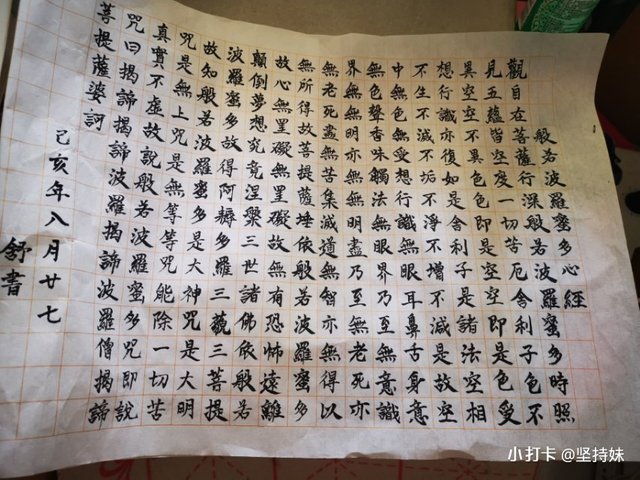 般若波羅蜜多心經
觀自在菩薩行深般若波羅蜜多時照
見五蘊皆空度一切苦厄舍利子色不
異空空不異色色即是空空即是色受
想行識亦復如是舍利子是諸法空相
不生不滅不垢不淨不增不減是故空
中無色無受想行識無眼耳鼻舌身意
無色聲香味觸法無眼界乃至無意識
界無無明亦無無明盡乃至無老死亦
無老死盡無苦集滅道無智亦無得以
無所得故菩提薩埵依般若波羅蜜多
故心無罣礙無罣礙故無有恐怖遠離
顛倒夢想究竟涅槃三世諸佛依般若
波羅蜜多故得阿耨多羅三藐三菩提
故知般若波羅蜜多是大神咒是大明
咒是無上咒是無等等咒能除一切苦
真實不虛故說般若波羅蜜多咒即說
咒曰揭諦揭諦波羅揭諦波羅僧揭諦
菩提薩婆訶
己亥年八月廿七
舒書
小打卡 @坚持妹